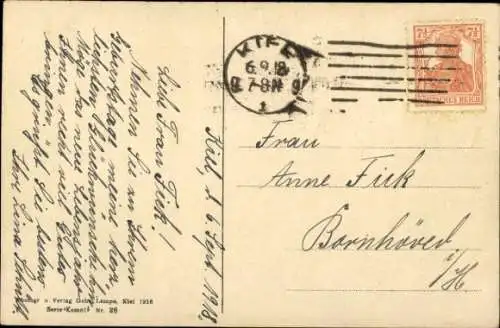 Kiel, d. 6. Sept. 1918.
Liebe Frau Fick!
Nehmen Sie zu Ihrem
Geburtstage meine herz-
lichsten Glückwünsche hin.
Möge das neue Lebensjahr
Ihnen recht viel Gutes
bringen.
Es grüßt Sie
Ihre Lina
KIEL
6.9.18
7-8N
1
7½ 7½
DEUTSCHES REICH
Frau
Anne Fick
Bornhöved
i/H.
u. Verlag Gebr. Lempe, Kiel 1916
Nr. 26